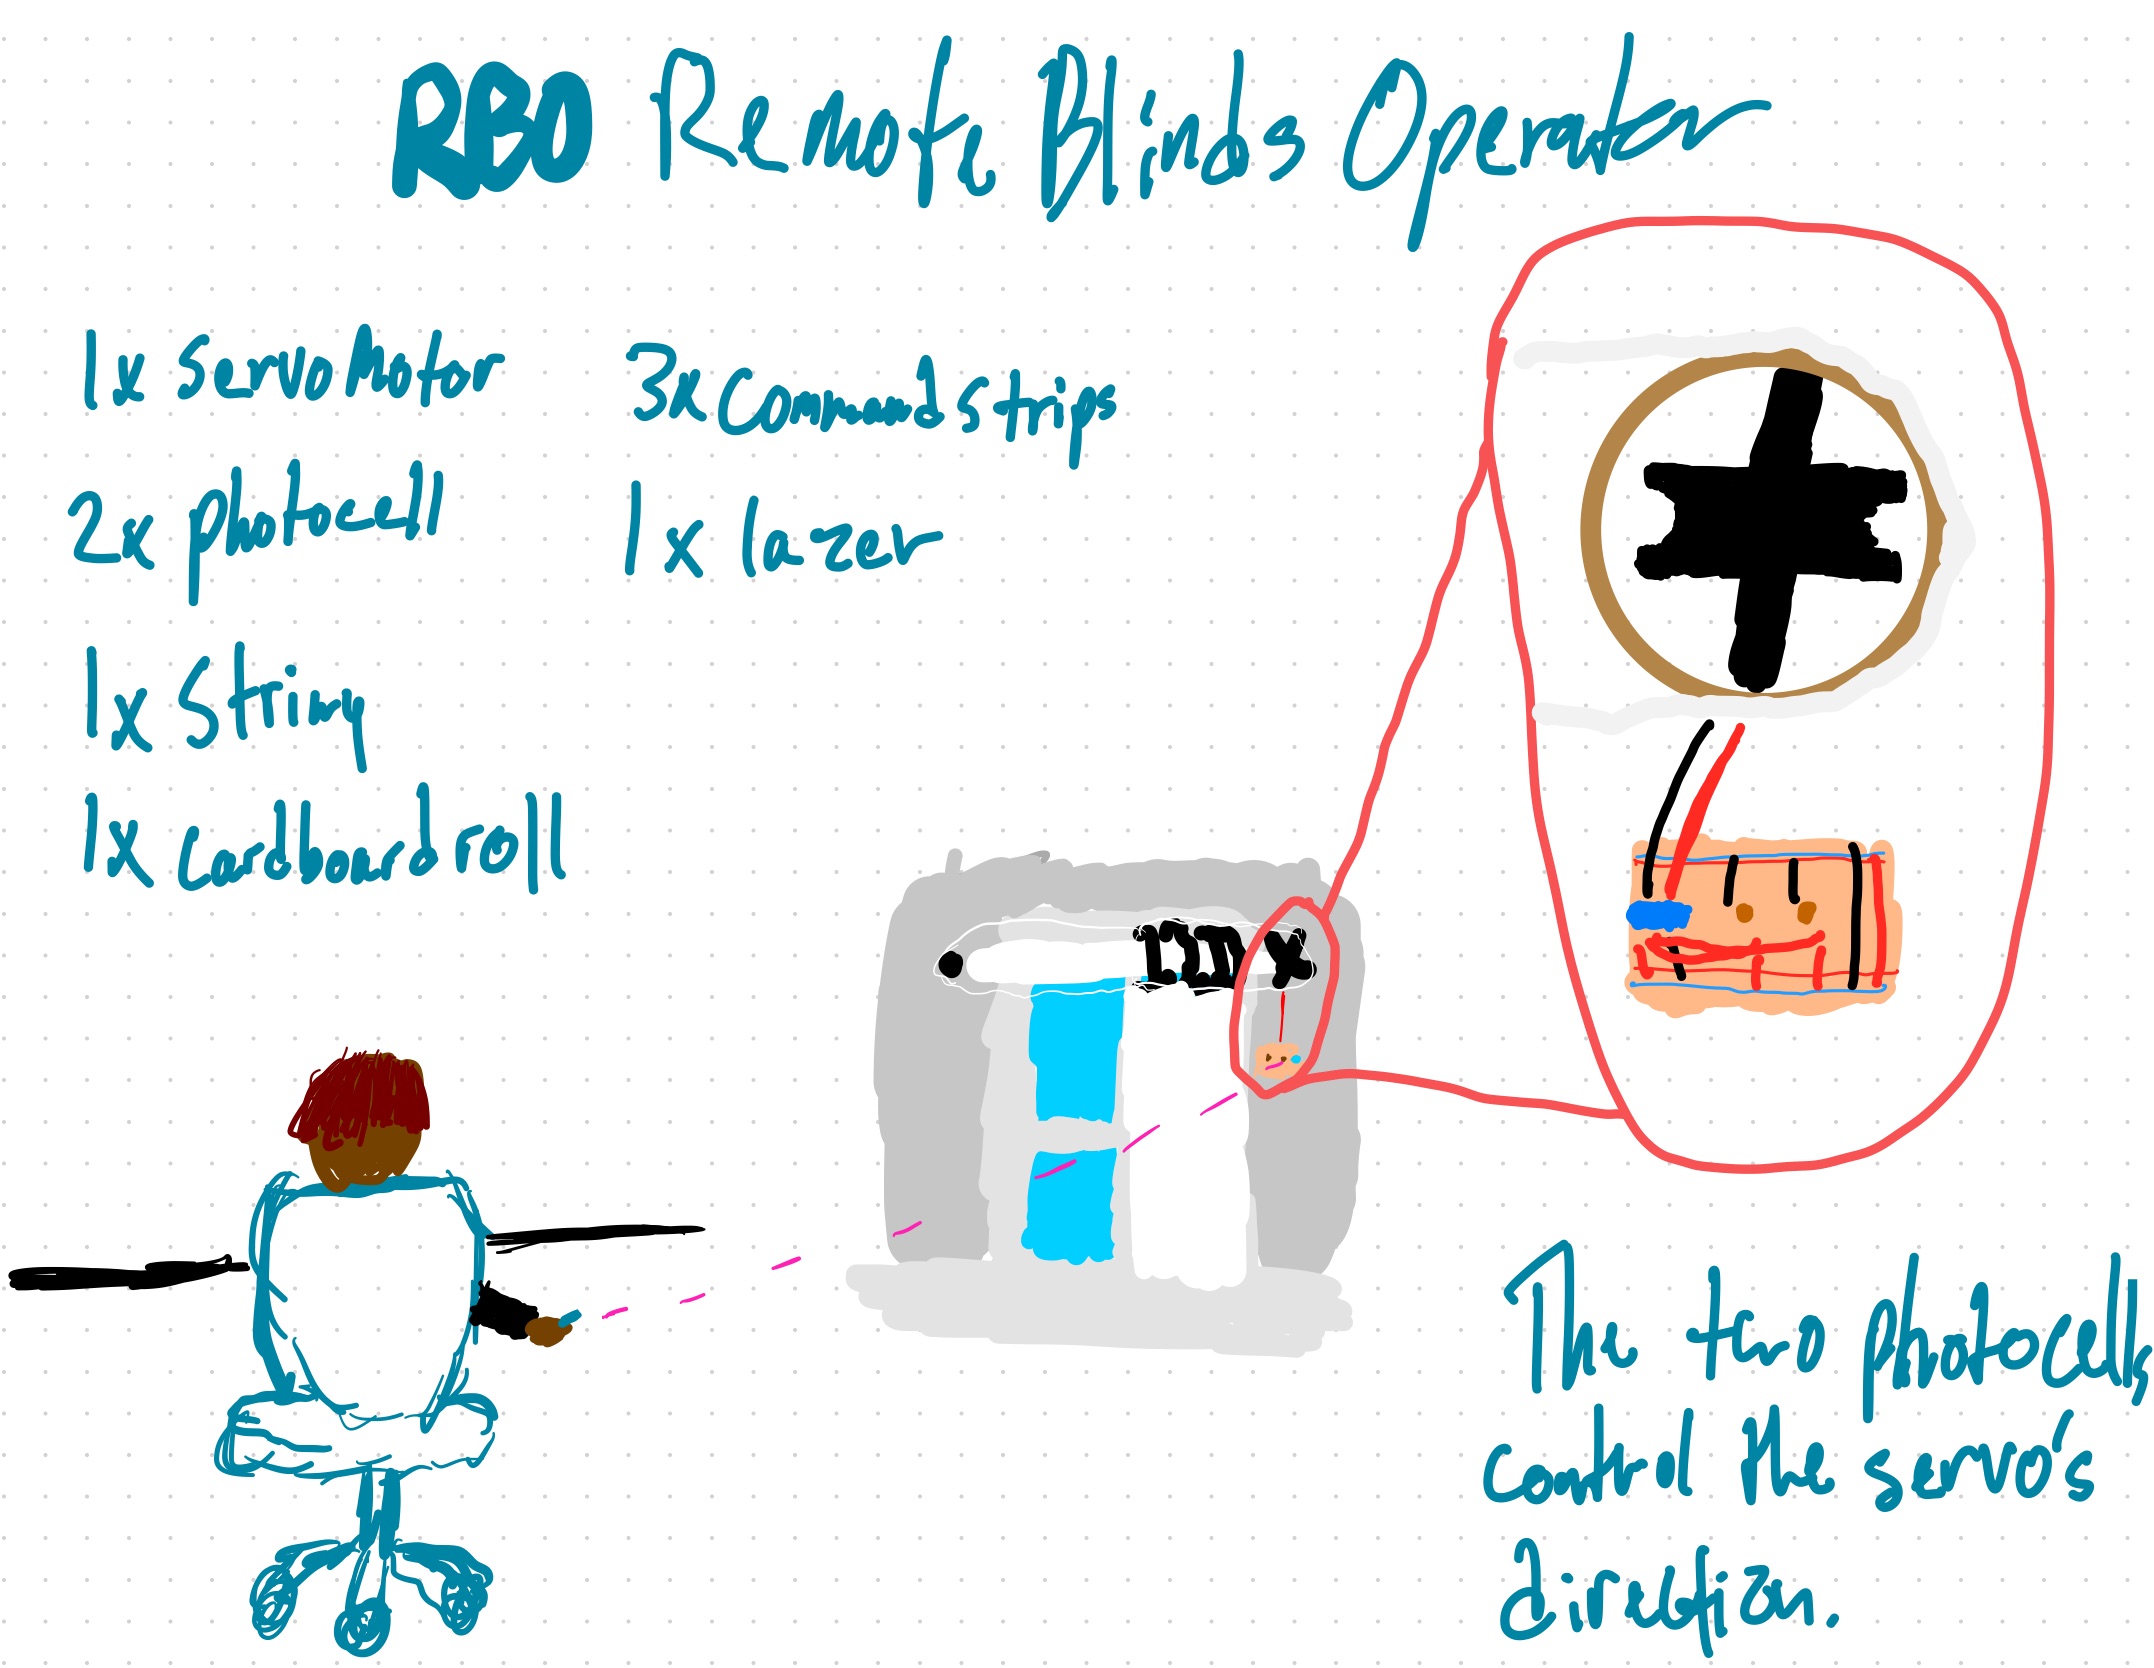 RBO Remote Blinds Operator
1x servo Motor
2x photocell
1x String
1x Cardboard roll
3x Command strips
1x lazer
The two photocells
control the servo's
direction.